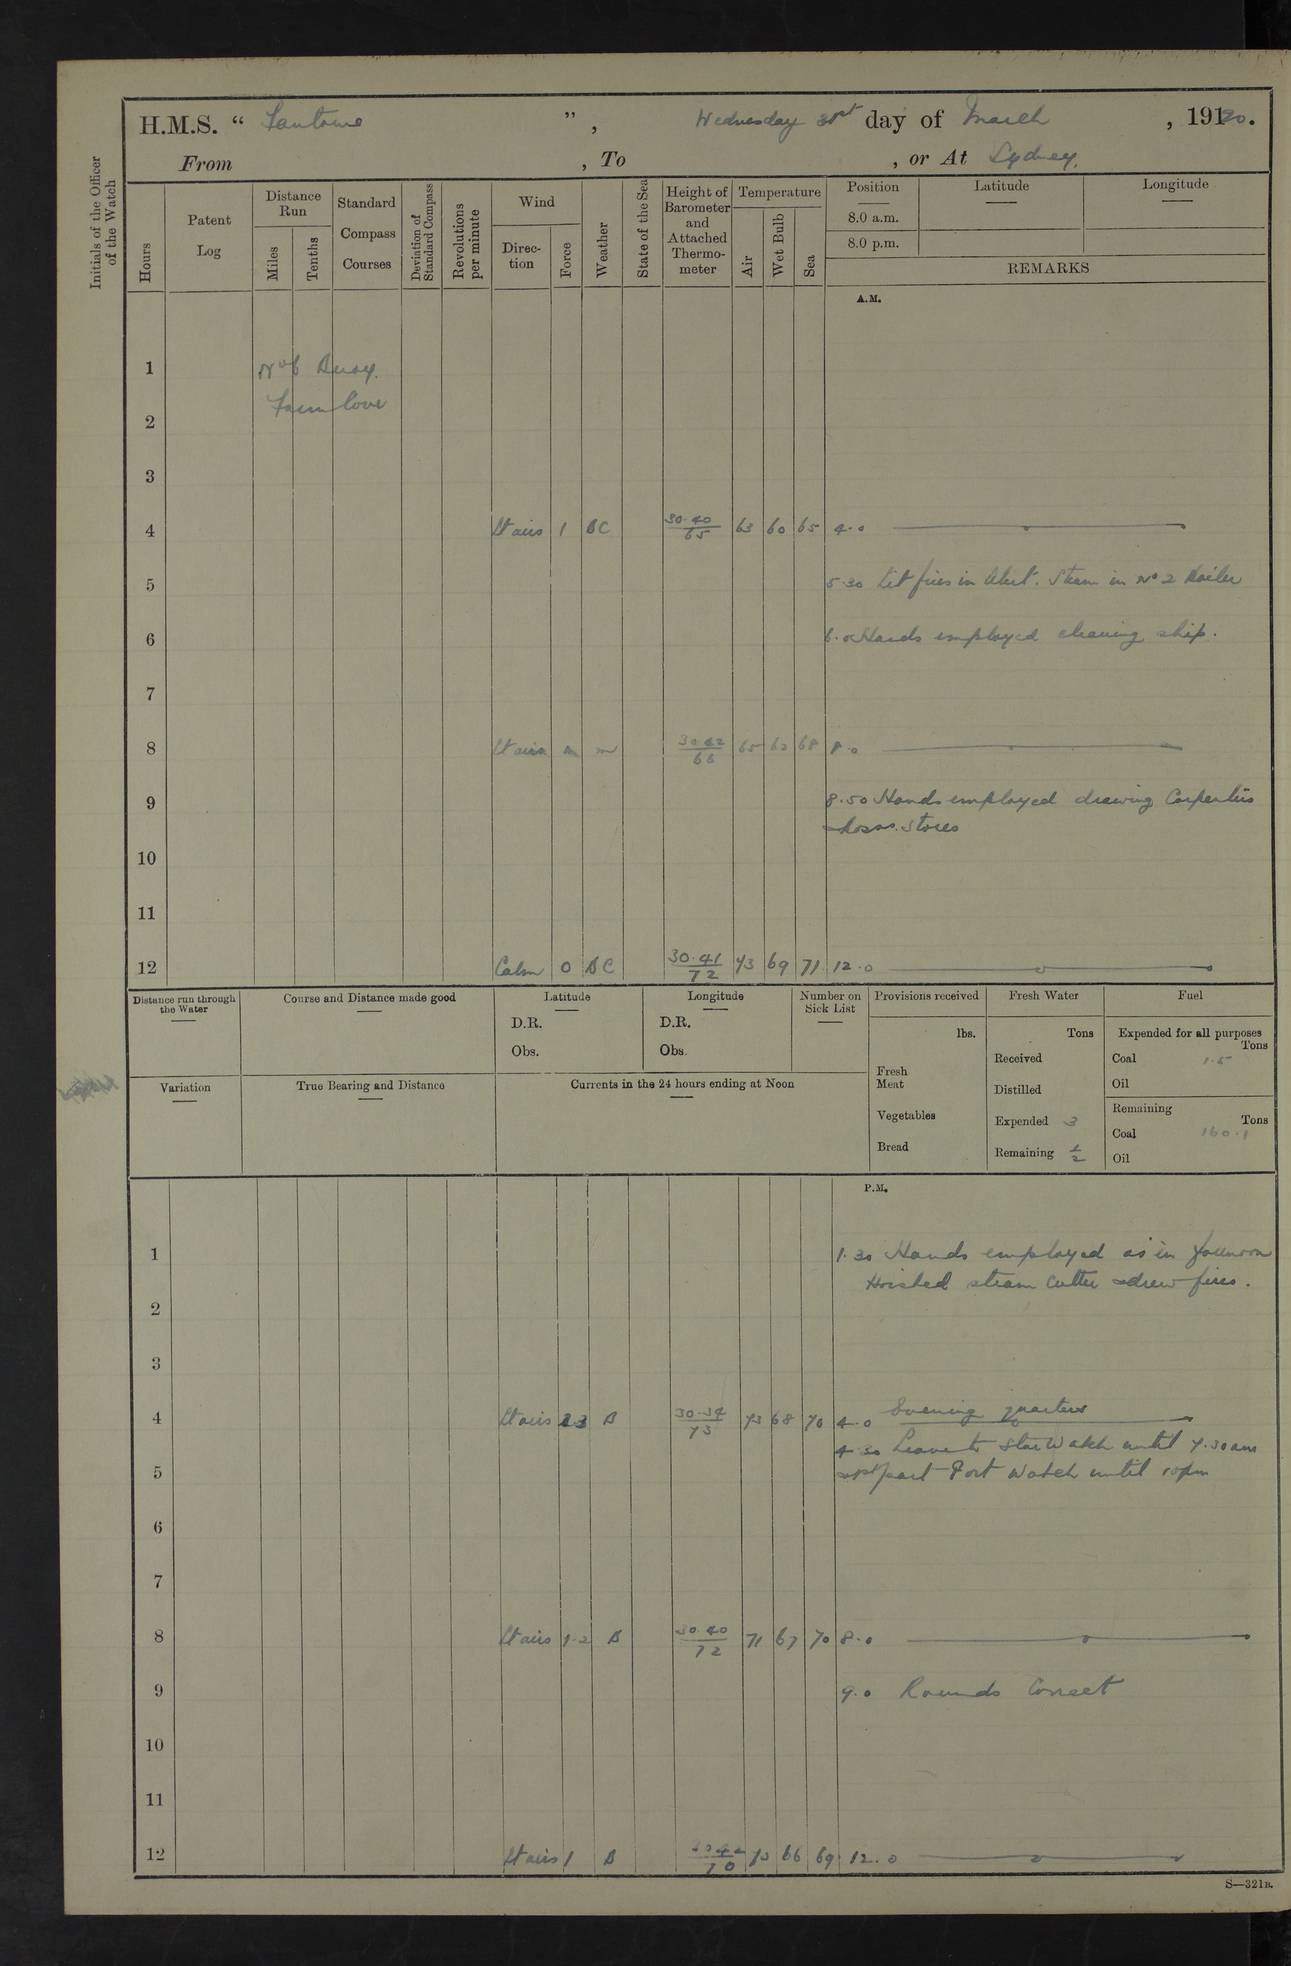 H.M.S. “ Fantome ”, Wednesday 31st day of March, 1920.
From , To , or At Sydney.
Initials of the Officer of the Watch
Hours
Patent Log
Distance Run
Miles
Tenths
Standard Compass Courses
Deviation of Standard Compass
Revolutions per minute
Wind
Direction
Force
Weather
State of the Sea
Height of Barometer and Attached Thermometer
Temperature
Air
Wet Bulb
Sea
Position
8.0 a.m.
8.0 p.m.
Latitude
Longitude
REMARKS
A.M.
1 No 6 Buoy.
2 Farm Cove
3
4 Lt airs 1 BC 30.40/65 63 60 65 4.0
5 5.30 Lit fires in Steam in No 2 Boiler
6 6.0 Hands employed cleaning ship.
7
8 Lt airs 30.42/66 65 62 68 8.0
9 8.50 Hands employed drawing Carpenters
Stores
10
11
12 Calm 0 BC 30.41/72 73 69 71 12.0
Distance run through the Water
Course and Distance made good
Latitude
D.R.
Obs.
Longitude
D.R.
Obs.
Number on Sick List
Provisions received
lbs.
Fresh Meat
Vegetables
Bread
Fresh Water
Tons
Received
Distilled
Expended 3
Remaining
Fuel
Expended for all purposes
Tons
Coal 1.5
Oil
Remaining
Tons
Coal 160.1
Oil
Variation
True Bearing and Distance
Currents in the 24 hours ending at Noon
P.M.
1 1.30 Hands employed as in forenoon
Hoisted steam cutter & drew fires.
2
3
4 Lt airs 2.3 B 30.34/73 73 68 70 4.0 Evening quarters
4.30 Leave to Star Watch until 7.30 am
& 1st part Port Watch until 10 pm
5
6
7
8 Lt airs 1.2 B 30.40/72 71 67 70 8.0
9 9.0 Rounds Correct
10
11
12 Lt airs 1 B 66 69 12.0
S—321B.